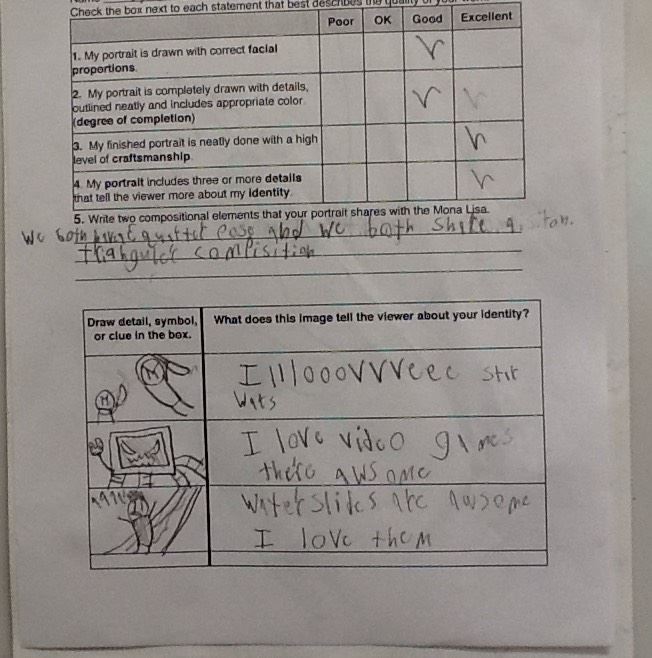 Check the box next to each statement that best describes the quality of your
Poor OK Good Excellent
1. My portrait is drawn with correct facial
proportions.
2. My portrait is completely drawn with details,
outlined neatly and includes appropriate color.
(degree of completion)
3. My finished portrait is neatly done with a high
level of craftsmanship.
4. My portrait includes three or more details
that tell the viewer more about my identity.
5. Write two compositional elements that your portrait shares with the Mona Lisa.
We both have quarter pose and we both share a
trianguler compisition
Draw detail, symbol, What does this image tell the viewer about your identity?
or clue in the box.
I lllooovvveee star
wars
M
H
I love video games
there awsome
waterslides are awsome
I love them